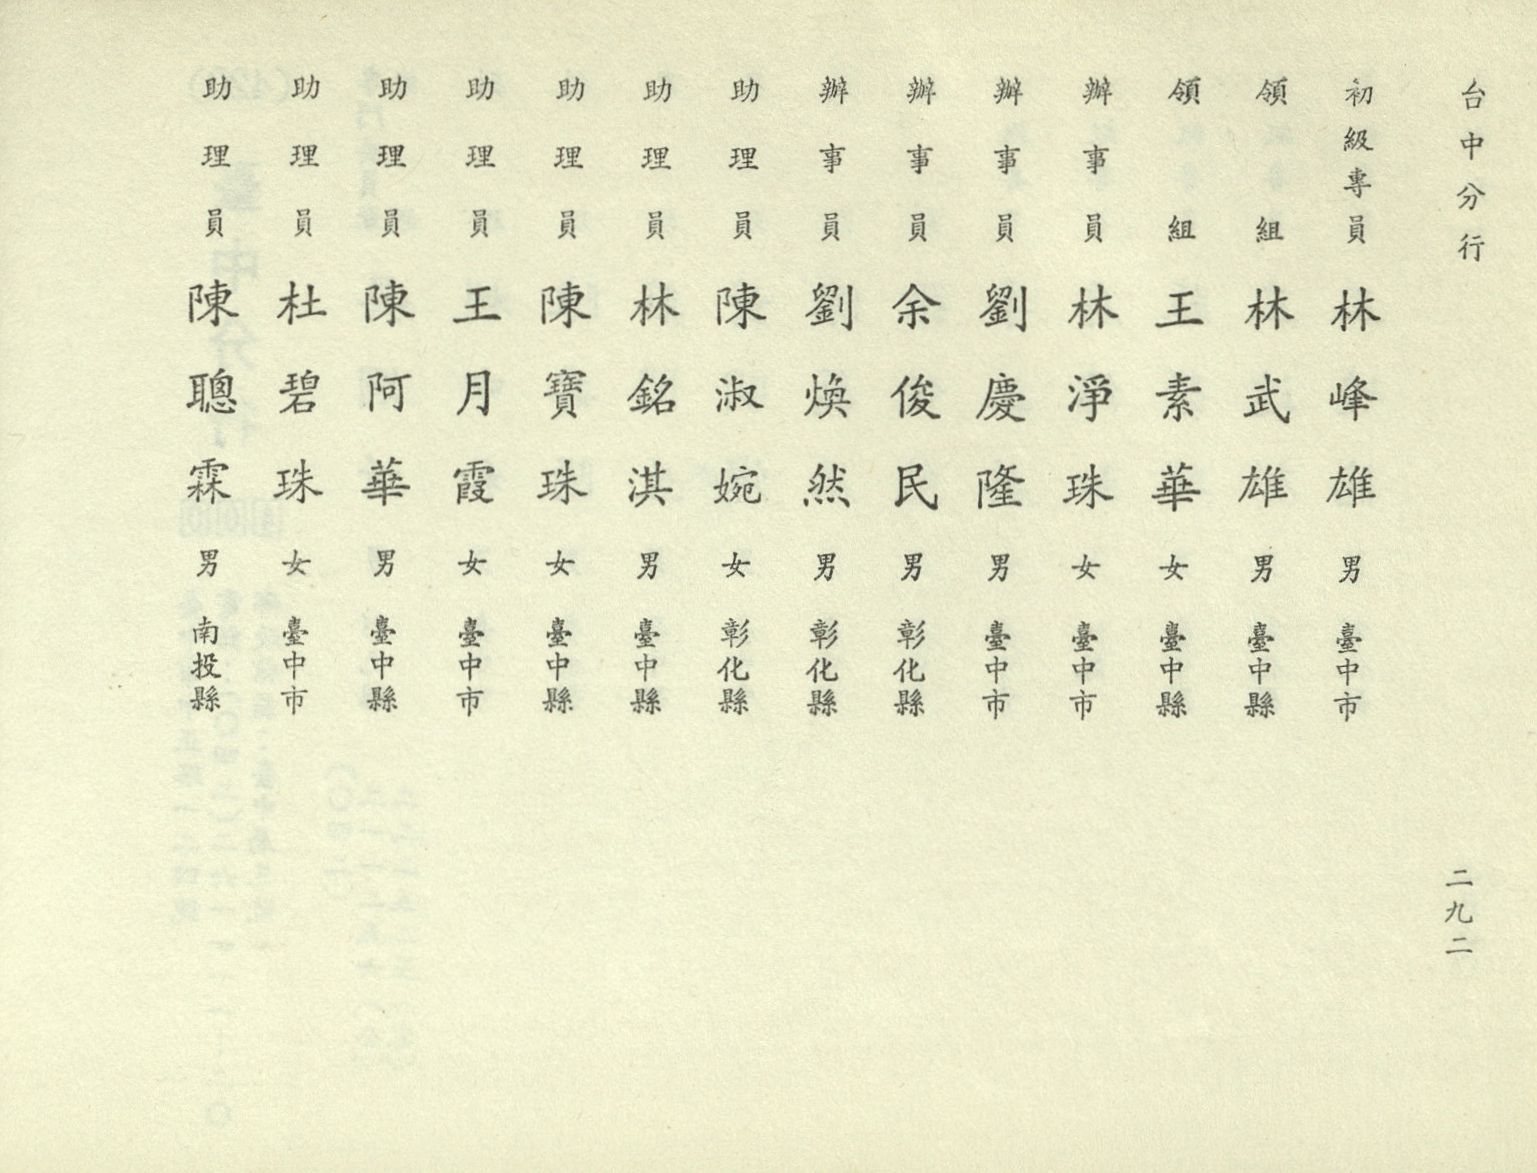 台中分行
初級專員 林峰雄 男 臺中市
領組 林武雄 男 臺中縣
領組 王素華 女 臺中縣
辦事員 林淨珠 女 臺中市
辦事員 劉慶隆 男 臺中市
辦事員 余俊民 男 彰化縣
辦事員 劉煥然 男 彰化縣
助理員 陳淑婉 女 彰化縣
助理員 林銘淇 男 臺中縣
助理員 陳寶珠 女 臺中縣
助理員 王月霞 女 臺中市
助理員 陳阿華 男 臺中縣
助理員 杜碧珠 女 臺中市
助理員 陳聰霖 男 南投縣
二九二